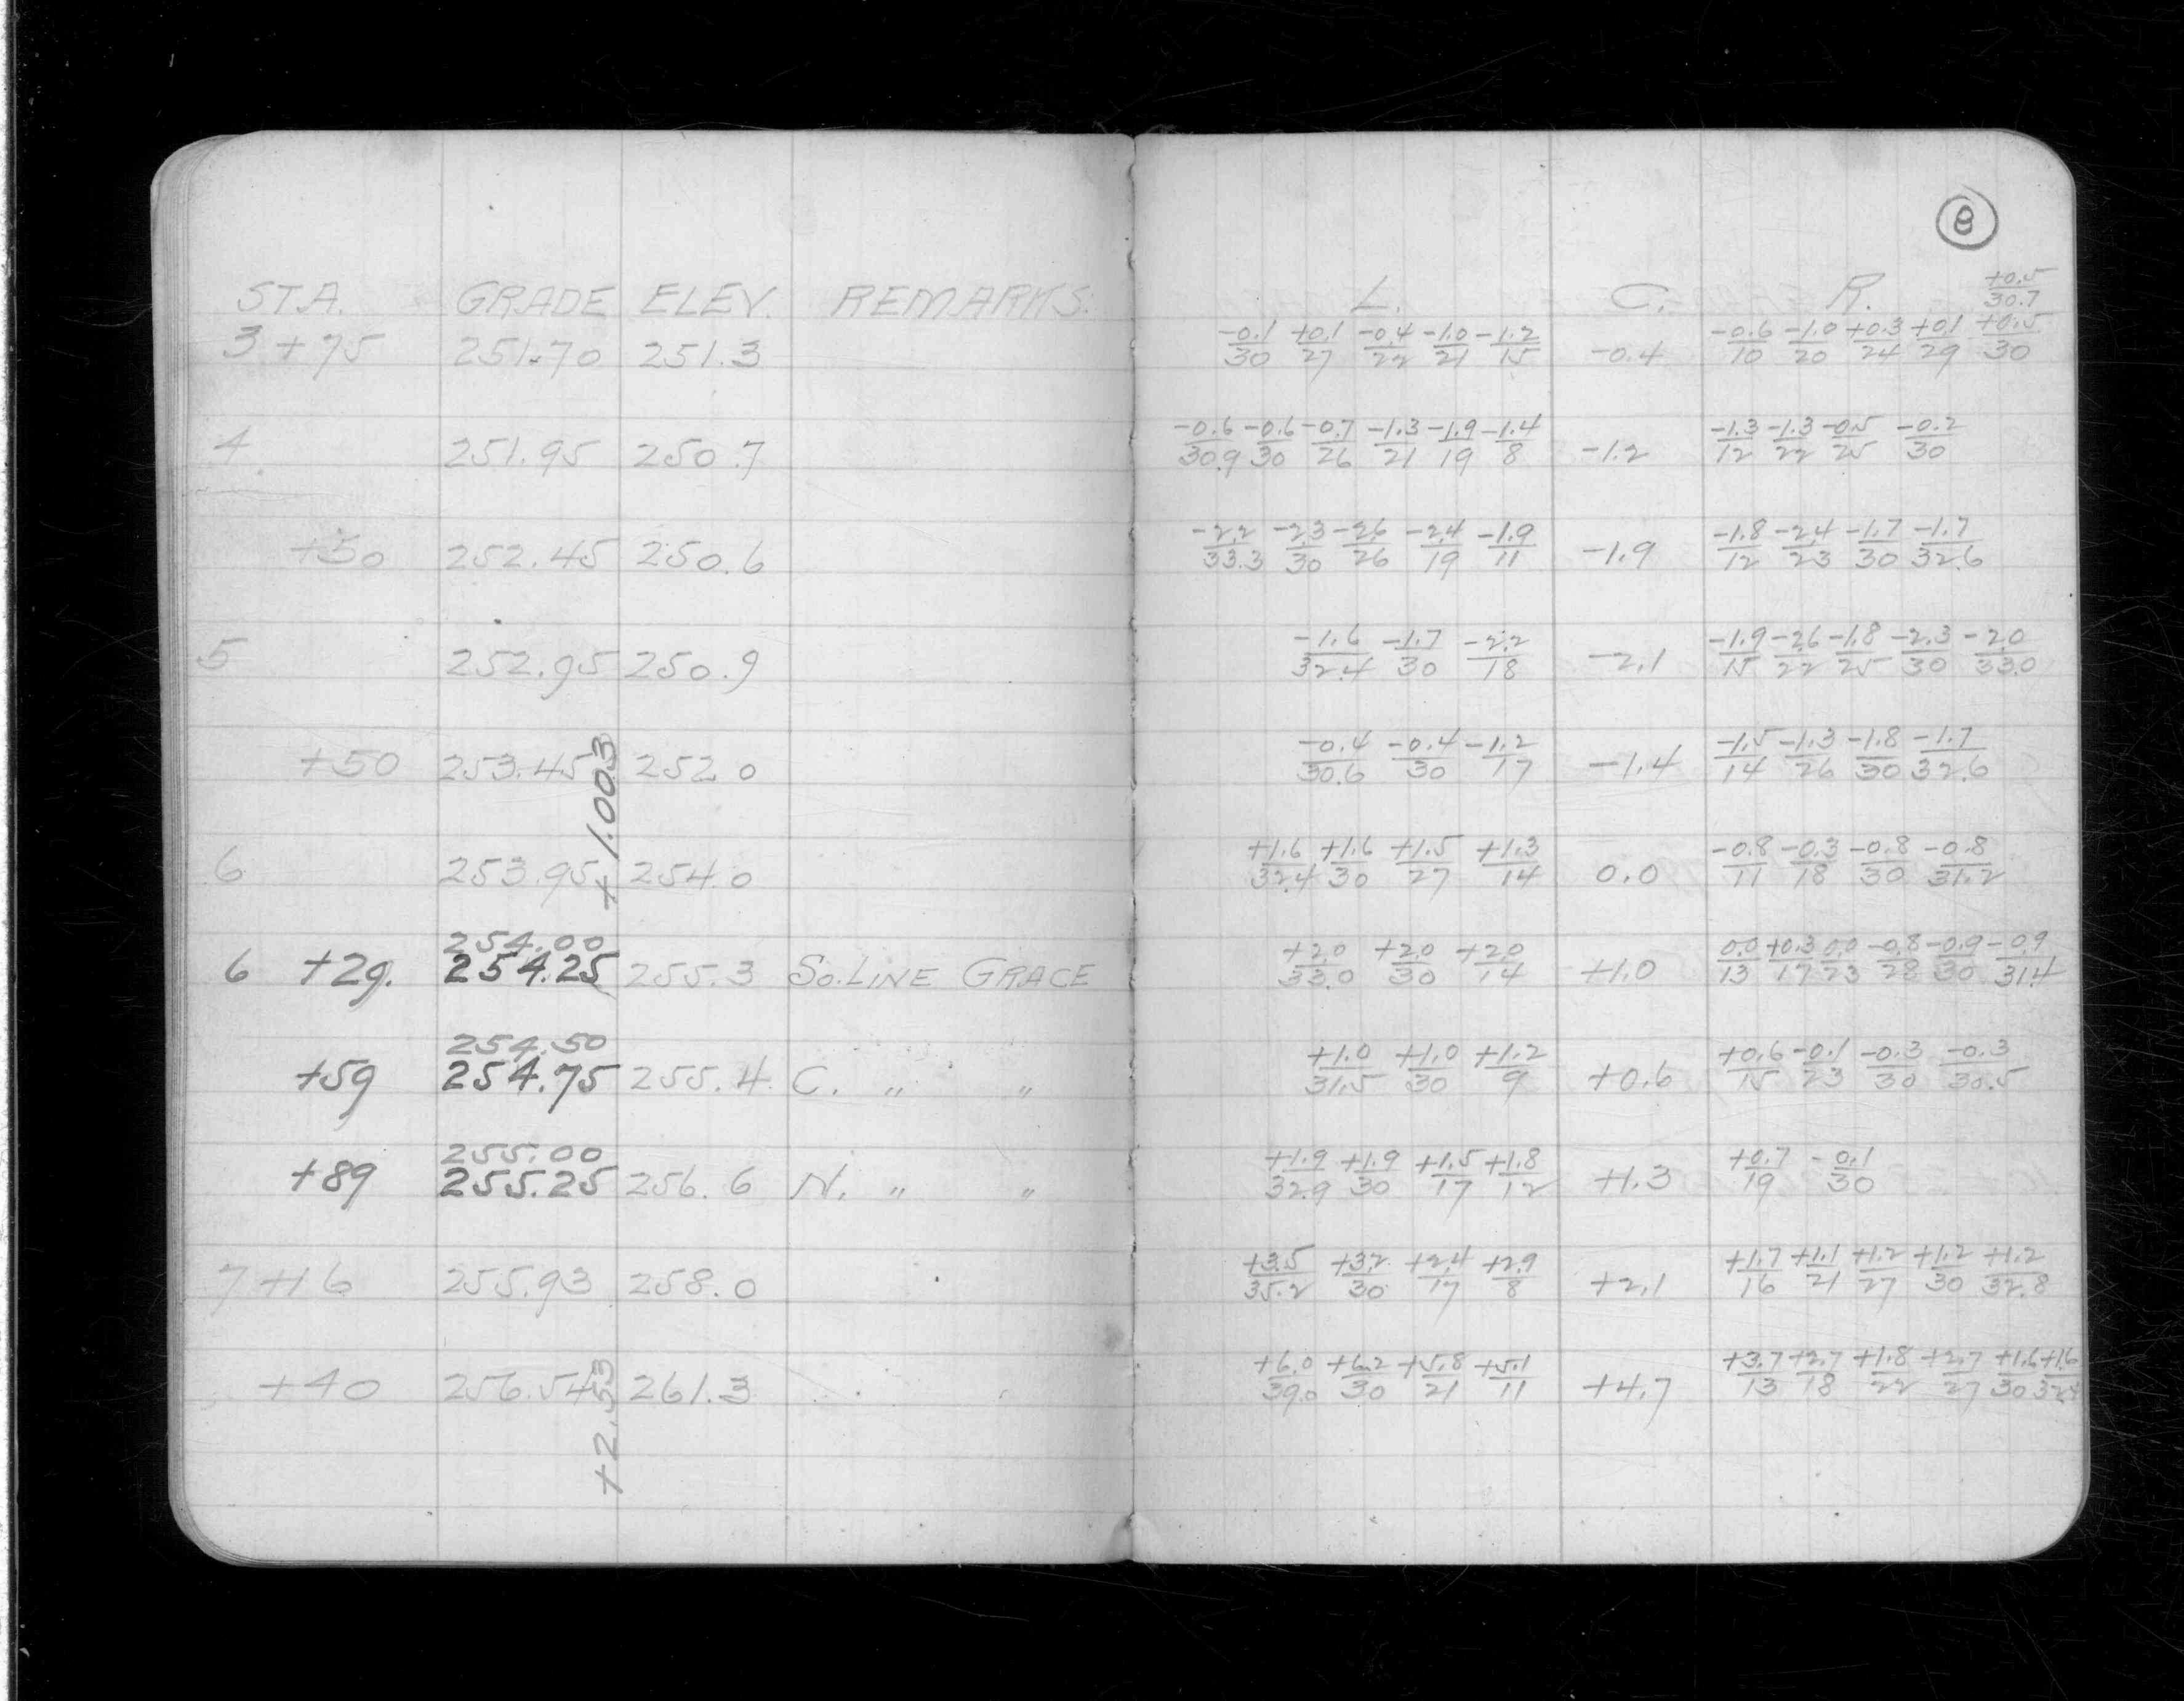 8
STA. GRADE ELEV. REMARKS. L. C. R. +0.5/30.7
3+75 251.70 251.3 -0.1/30 +0.1/27 -0.4/22 -1.0/21 -1.2/15 -0.4 -0.6/10 -1.0/20 +0.3/24 +0.1/29 +0.5/30
4 251.95 250.7 -0.6/30.9 -0.6/30 -0.7/26 -1.3/21 -1.9/19 -1.4/8 -1.2 -1.3/12 -1.3/22 -0.5/25 -0.2/30
+50 252.45 250.6 -2.2/33.3 -2.3/30 -2.6/26 -2.4/19 -1.9/11 -1.9 -1.8/12 -2.4/23 -1.7/30 -1.7/32.6
5 252.95 250.9 -1.6/32.4 -1.7/30 -2.2/18 -2.1 -1.9/15 -2.6/22 -1.8/25 -2.3/30 -2.0/33.0
+50 253.45 252.0 -0.4/30.6 -0.4/30 -1.2/17 -1.4 -1.5/14 -1.3/26 -1.8/30 -1.7/32.6
+1.003
6 253.95 254.0 +1.6/32.4 +1.6/30 +1.5/27 +1.3/14 0.0 -0.8/11 -0.3/18 -0.8/30 -0.8/31.2
254.00
6 +29. 254.25 255.3 So. LINE GRACE +2.0/33.0 +2.0/30 +2.0/14 +1.0 0.0/13 +0.3/17 0.0/23 -0.8/28 -0.9/30 -0.9/31.4
254.50
+59 254.75 255.4 C. " " +1.0/31.5 +1.0/30 +1.2/9 +0.6 +0.6/15 -0.1/23 -0.3/30 -0.3/30.5
255.00
+89 255.25 256.6 N. " " +1.9/32.9 +1.9/30 +1.5/17 +1.8/12 +1.3 +0.7/19 -0.1/30
7+16 255.93 258.0 +3.5/35.2 +3.2/30 +2.4/17 +2.9/8 +2.1 +1.7/16 +1.1/21 +1.2/27 +1.2/30 +1.2/32.8
+40 256.54 261.3 +6.0/39.0 +6.2/30 +5.8/21 +5.1/11 +4.7 +3.7/13 +2.7/18 +1.8/22 +2.7/27 +1.6/30 +1.6/32.4
+2.53